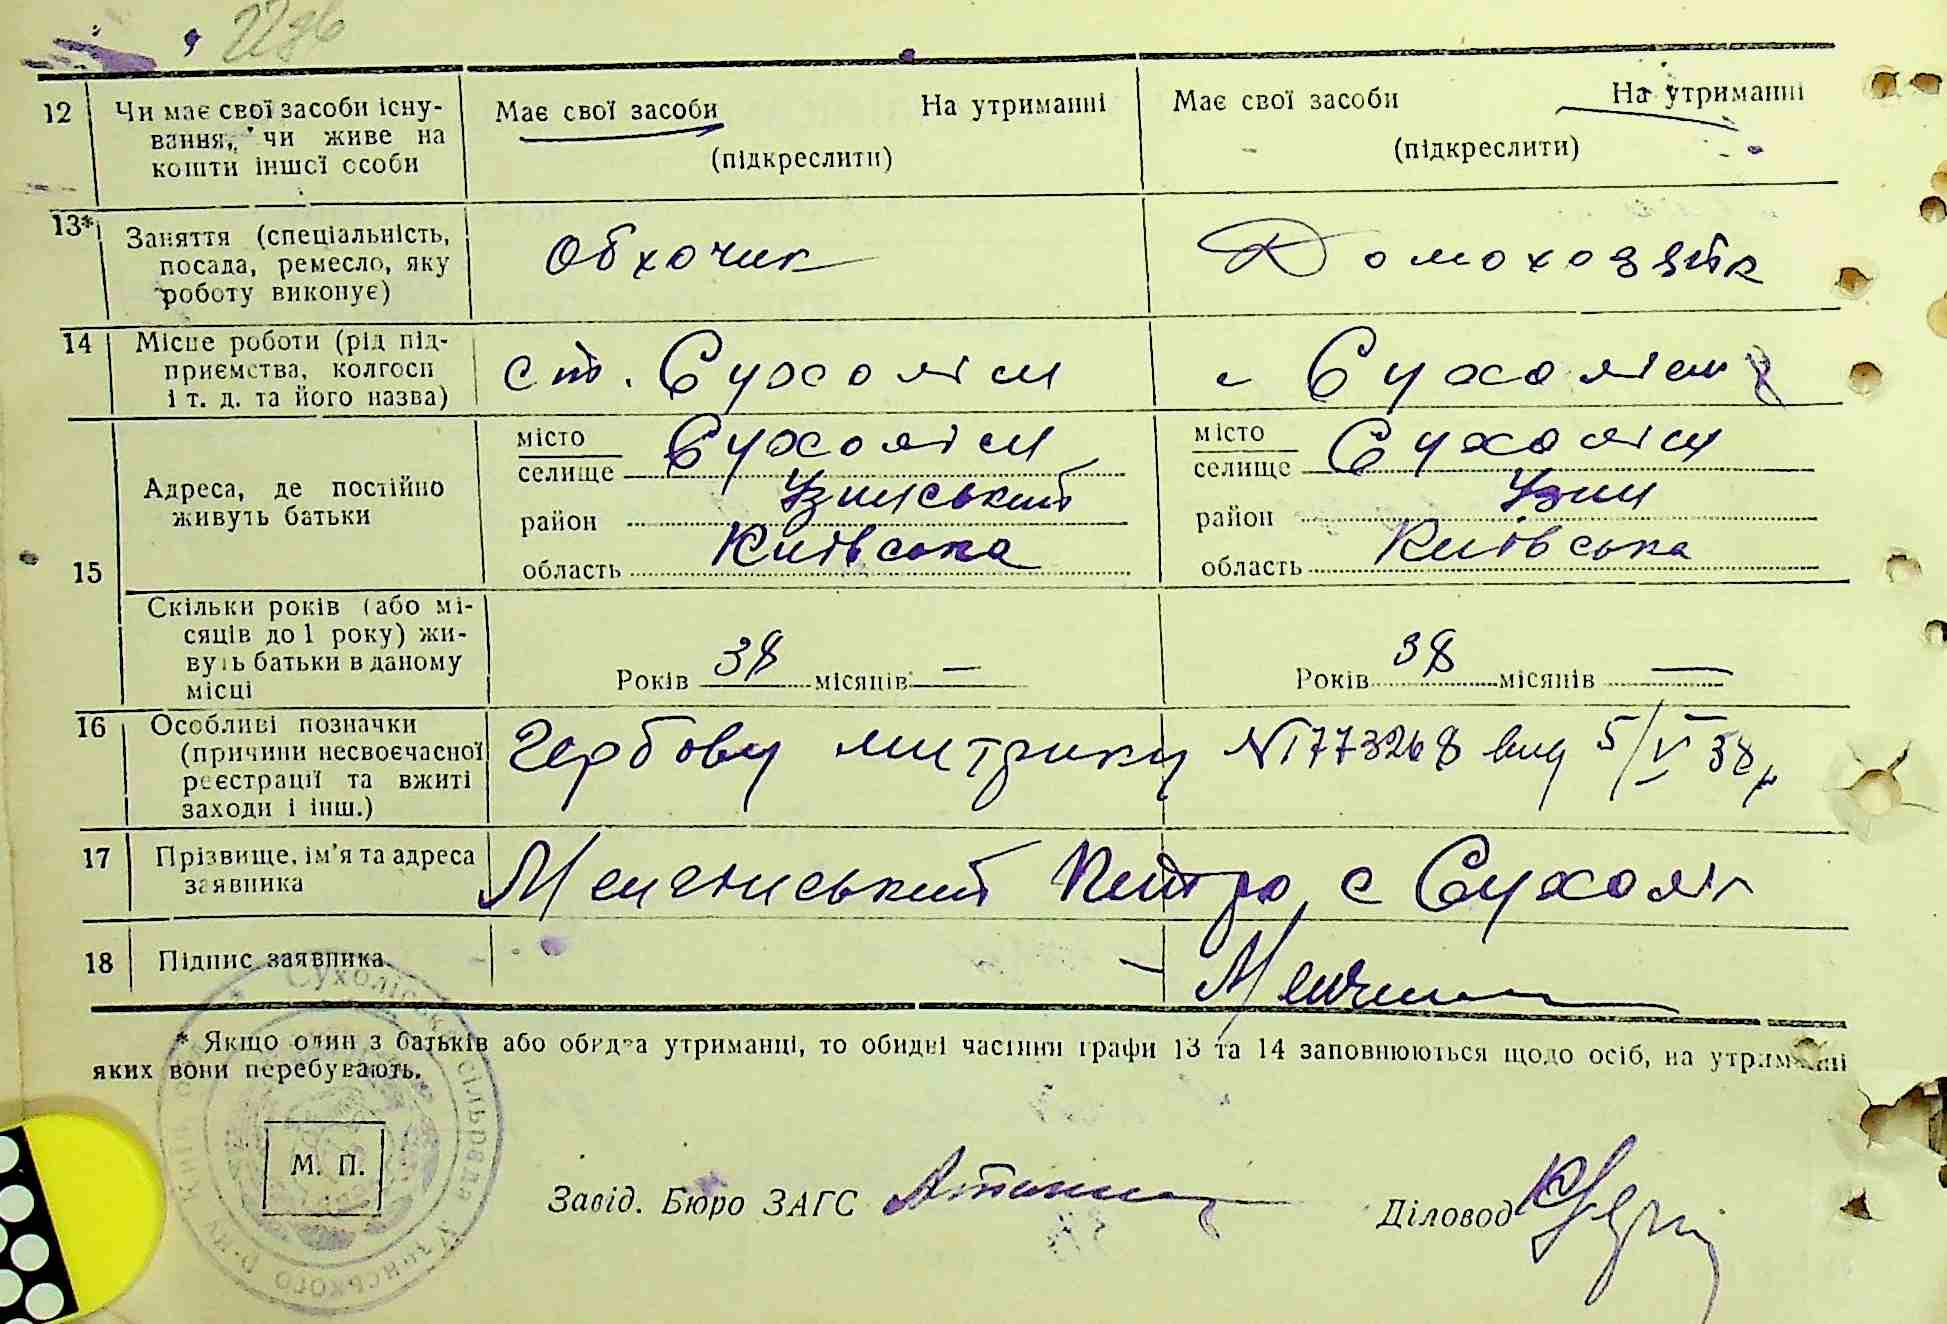 22зв
12 Чи має свої засоби існу- Має свої засоби На утриманні Має свої засоби На утриманні
вання, чи живе на
кошти іншої особи (підкреслити) (підкреслити)
13* Заняття (спеціальність, Обхочик Домохозяйк
посада, ремесло, яку
роботу виконує)
14 Місце роботи (рід під- ст. Сухоліси с Сухоліси
приємства, колгосп
і т. д. та його назва)
15 Адреса, де постійно
живуть батьки
місто Сухоліси місто Сухоліси
селище селище
район Узинський район Узин
область Київська область Київська
Скільки років (або мі-
сяців до 1 року) жи-
вуть батьки в даному Років 38 місяців — Років 38 місяців —
місці
16 Особливі позначки Гербову митрику №1773268 вид 5/V 38р
(причини несвоєчасної
реєстрації та вжиті
заходи і інш.)
17 Прізвище, ім'я та адреса Менчинський Петро с Сухоліс
заявника
18 Підпис заявника
* Якщо один з батьків або обидва утриманні, то обидві частини графи 13 та 14 заповнюються щодо осіб, на утриманні
яких вони перебувають.
М. П.
Сухоліська сільрада Узинського р-ну Київ
Завід. Бюро ЗАГС
Діловод